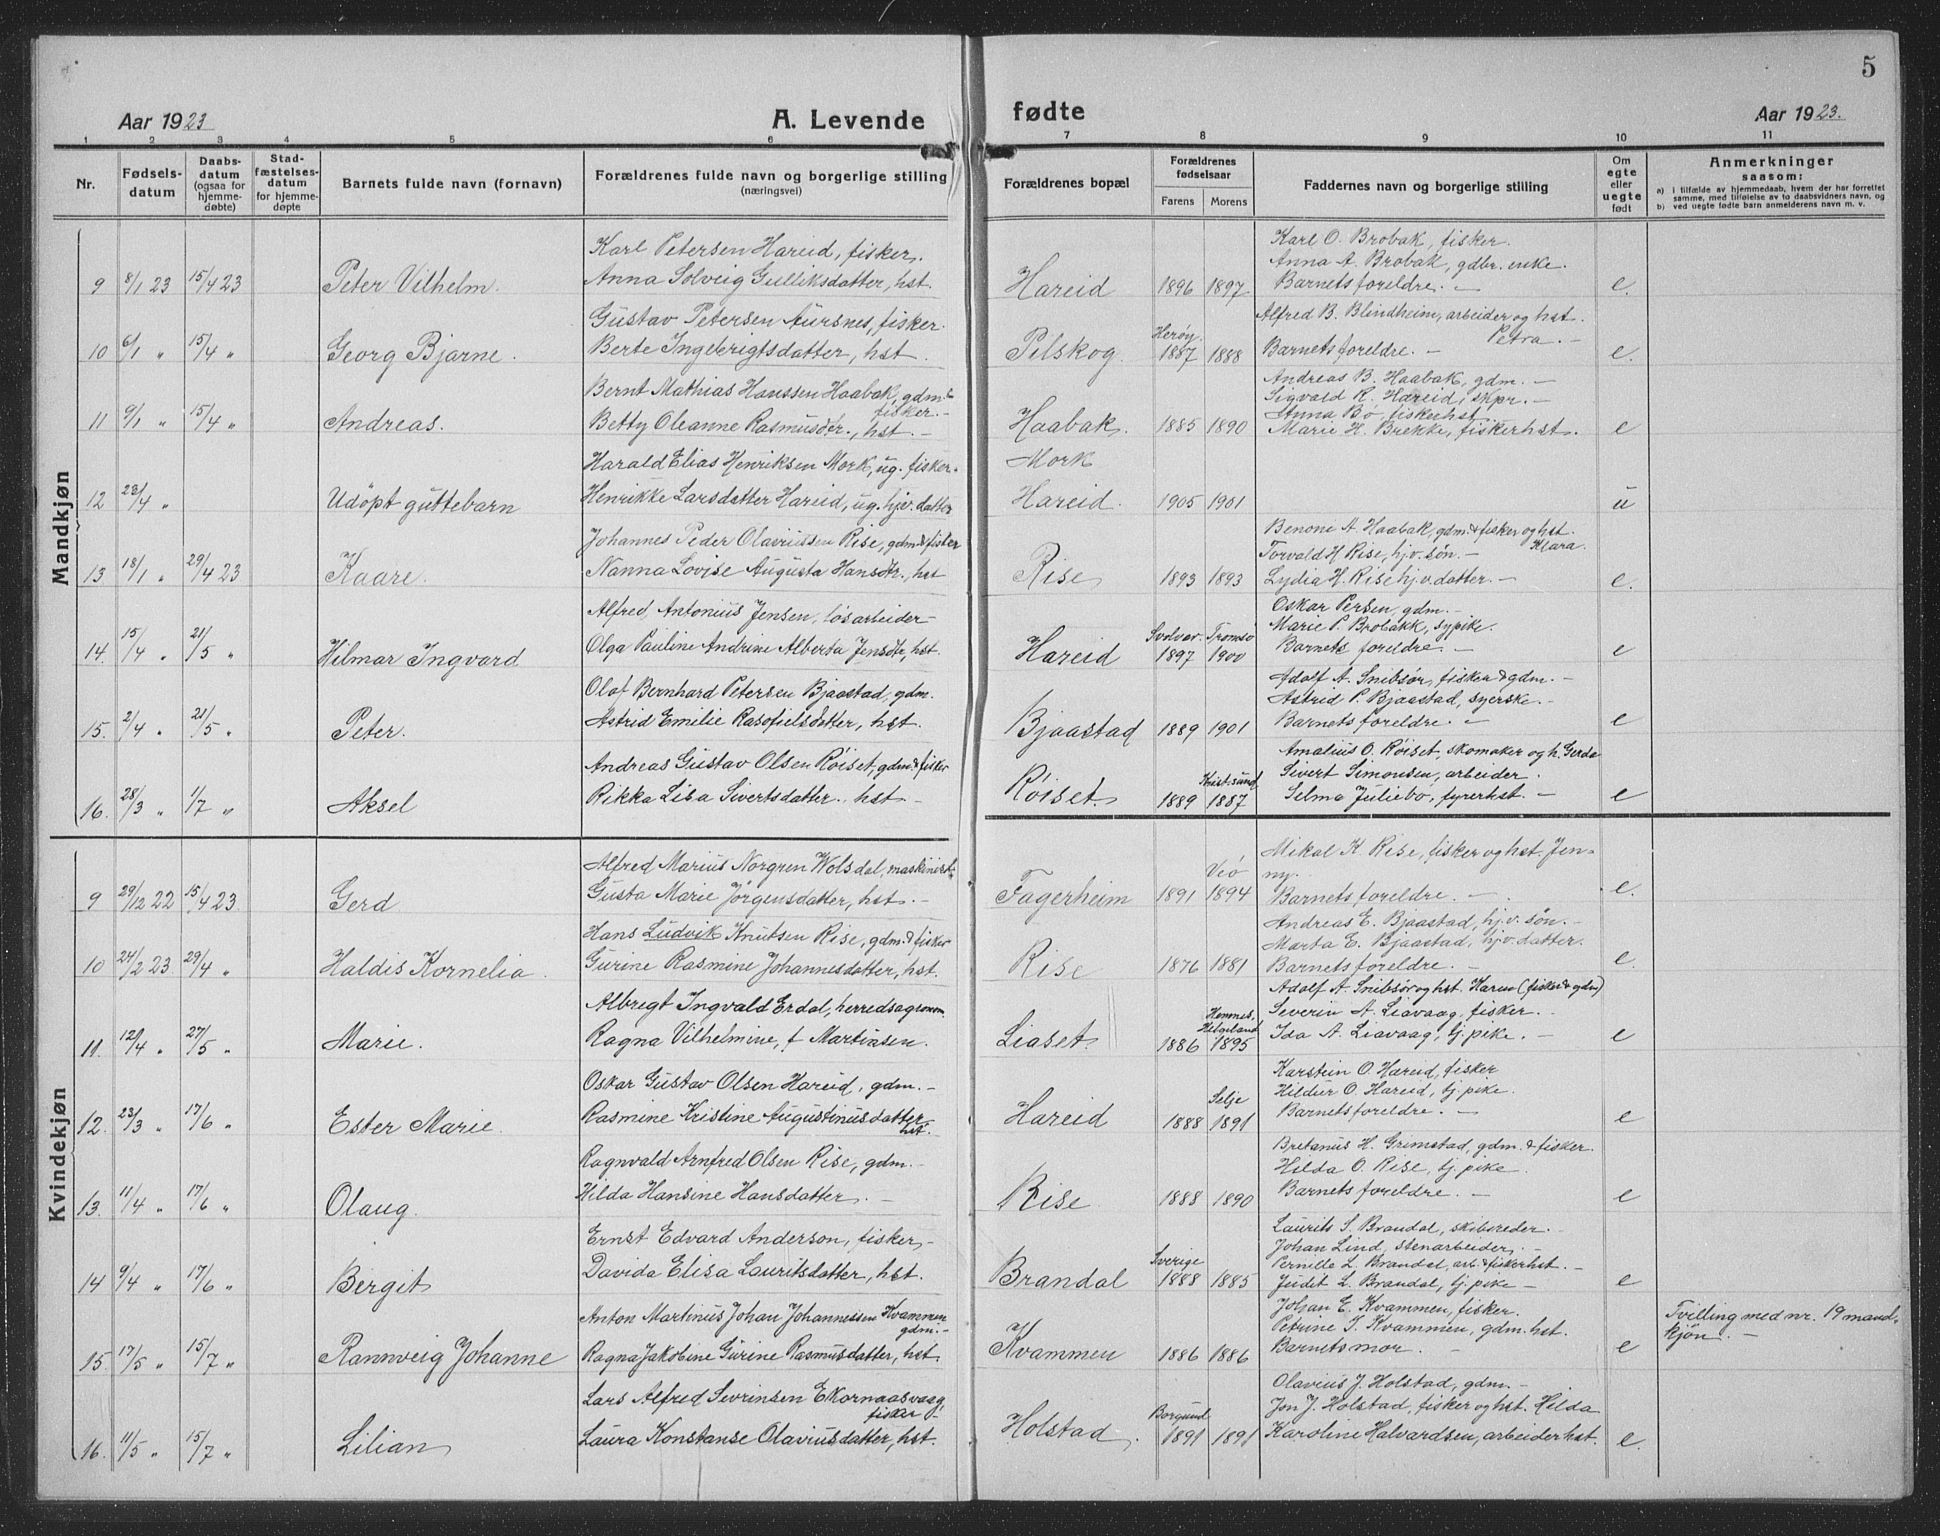 5
Aar 1923
A. Levende
fødte
Aar 1923.
1 2 3 4 5 6 7 8 9 10 11
Nr.
Fødsels-
datum
Daabs-
datum
(ogsaa for
hjemme-
døbte)
Stad-
fæstelses-
datum
for hjemme-
døpte
Barnets fulde navn (fornavn)
Forældrenes fulde navn og borgerlige stilling
(næringsvei)
Forældrenes bopæl
Forældrenes
fødselsaar
Farens Morens
Faddernes navn og borgerlige stilling
Om
egte
eller
uegte
født
Anmerkninger
saasom:
a) i tilfælde av hjemmedaab, hvem der har forrettet
samme, med tilføielse av to daabsvidners navn, og
b) ved uegte fødte barn anmelderens navn m. v.
Mandkjøn
Karl Petersen Hareid, fisker.
Karl O. Brobak, fisker.
Anna A. Brobak, gdbr. enke.
9 8/1 23 15/4 23 Peter Vilhelm. Anna Solveig Gulliksdatter, hst. Hareid 1896 1897 Barnets foreldre. – e.
Gustav Petersen Aursnes, fisker.
Alfred B. Blindheim, arbeider og hst.
Petra. –
Herøy.
10 6/1 " 15/4 " Georg Bjarne. Berte Ingebrigtsdatter, hst. Pilskog. 1887 1888 Barnets foreldre. – e.
Bernt Mathias Hanssen Haabak, gdm. &
fisker. –
Andreas B. Haabak, gdm. –
Sigvald R. Hareid, skpr. –
Anna Bø, fiskerhst.
11 9/1 " 15/4 " Andreas. Betty Oleanne Rasmusdtr., hst. – Haabak. 1885 1890 Marie H. Brekke, fiskerhst. e
Harald Elias Henriksen Mork, ug. fisker. Mork
12 23/4 " Udöpt guttebarn Henrikke Larsdatter Hareid, ug. hjv. datter Hareid. 1905 1901 u
Johannes Peder Olaviussen Rise, gdm. & fisker
Benone A. Haabak, gdm. & fisker og hst.
Klara.
Torvald H. Rise, hjv. søn. –
13 18/1 " 29/4 23 Kaare. Nanna Lovise Augusta Hansdtr., hst Rise 1893 1893 Lydia H. Rise hjv. datter. – e.
Alfred Antonius Jensen, løsarbeider –
Oskar Persen, gdm. –
Marie P. Brobakk, sypike.
Svolvær. Tromsø
14. 15/4 " 21/5 " Hilmar Ingvard Olga Pauline Andrine Alberta Jensdtr, hst. Hareid 1897 1900 Barnets foreldre. – e
Olaf Bernhard Petersen Bjaastad, gdm.
Adolf A. Snibsør, fisker & gdm. –
Astrid P. Bjaastad, syerske. –
15. 2/4 " 21/5 " Peter. Astrid Emilie Rasofielsdatter, hst. Bjaastad 1889 1901 Barnets foreldre. – e
Andreas Gustav Olsen Röiset, gdm. & fisker
Amalius O. Røiset, skomaker og h. Gerda
Sivert Simonsen, arbeider.
Krist.sund
16. 28/3 " 1/7 " Aksel Rikka Lisa Sivertsdatter., hst – Röiset. 1889 1887 Selma Juliebø, fyrerhst. – e
Kvindekjøn
Alfred Marius Norgren Wolsdal, maskinist.
Mikal K. Rise, fisker og hst. Jen-
ny.
Veö
9 29/12 22 15/4 23 Gerd Gusta Marie Jørgensdatter, hst. – Fagerheim 1891 1894 Barnets foreldre. – e.
Hans Ludvik Knutsen Rise, gdm. & fisker
Andreas E. Bjaastad, hj.v. søn. –
Marta E. Bjaastad, hjv. datter.
10 24/2 23 29/4 " Haldis Kornelia. Gurine Rasmine Johannesdatter, hst. Rise 1876 1881 Barnets foreldre. – e.
Albregt Ingvald Erdal, herredsagronom.
Adolf A. Snibsør og hst. Karen (fisker & gdm)
Severin A. Liavaag, fisker. –
Hemnes,
Helgeland
11. 12/4 " 27/5 " Marie. Ragna Vilhelmine, f. Martinsen. Liaset. 1886 1895 Ida A. Liavaag, tj. pike. – e
Oskar Gustav Olsen Hareid, gdm. –
Karstein O. Hareid, fisker
Hildur O. Hareid, tj. pike.
Selje
12. 23/3 " 17/6 " Ester Marie. Rasmine Kristine Augustinusdatter
hst. –
Hareid 1888 1891 Barnets foreldre. – e
Ragnvald Arnfred Olsen Rise, gdm. –
Bretanus H. Grimstad, gdm. & fisker.
Hilda O. Rise, tj. pike.
13. 11/4 " 17/6 " Olaug. Hilda Hansine Hansdatter. – Rise 1888 1890 Barnets foreldre. – e
Ernst Edvard Anderson, fisker, –
Laurits S. Brandal, skibsreder. –
Johan Lind, stenarbeider, –
Pernille L. Brandal, arb. & fiskerhst. –
Sverige
14 9/4 " 17/6 " Bergit Davida Elisa Lauritsdatter, hst. Brandal 1888 1885 Judit L. Brandal, tj. pike – e
Anton Martinus Johan Johannessen Kvammen
gdm. –
Johan E. Kvammen, fisker.
Petrine J. Kvammen, gdm. hst.
Tvilling med nr. 19 mand-
kjøn. –
15. 17/5 " 15/7 " Rannveig Johanne Ragna Jakobine Gurine Rasmusdatter, hst. Kvammen 1886 1886 Barnets mor. – e
Lars Alfred Sevrinsen Ekornaasvaag,
fisker –
Olavius J. Holstad, gdm. –
Jon J. Holstad, fisker og hst. Hilda
Borgund
16. 11/5 " 15/7 " Lilian Laura Konstanse Olaviusdatter, hst. Holstad. 1891 1891 Karoline Halvardsen, arbeiderhst. e.